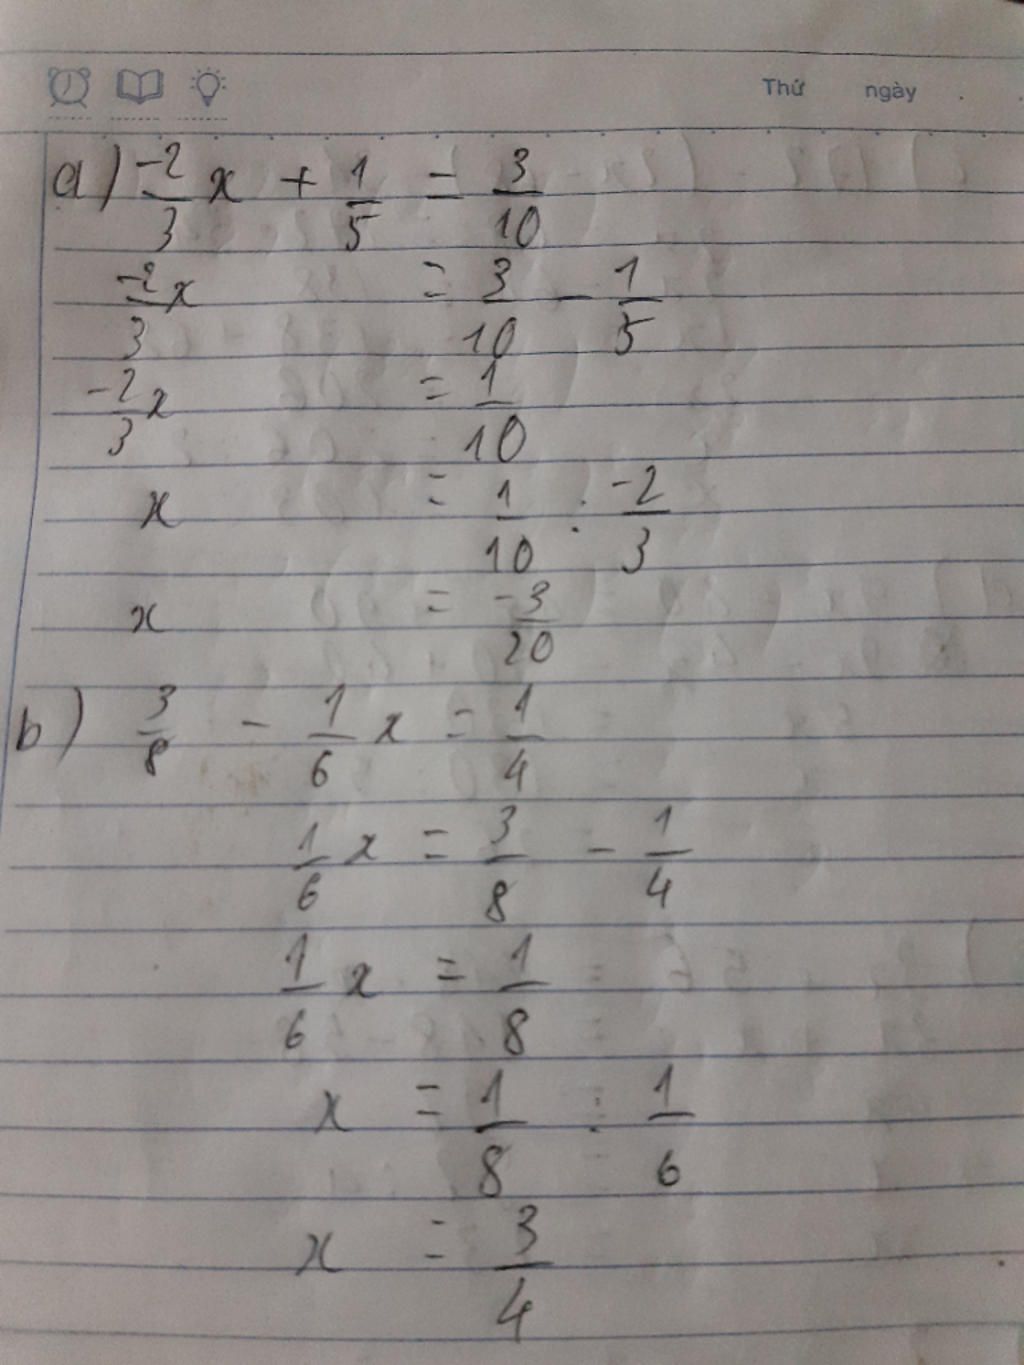 Thứ ngày
a) -2/3 x + 1/5 = 3/10
-2/3 x = 3/10 - 1/5
-2/3 x = 1/10
x = 1/10 : -2/3
x = -3/20
b) 3/8 - 1/6 x = 1/4
1/6 x = 3/8 - 1/4
1/6 x = 1/8
x = 1/8 : 1/6
x = 3/4